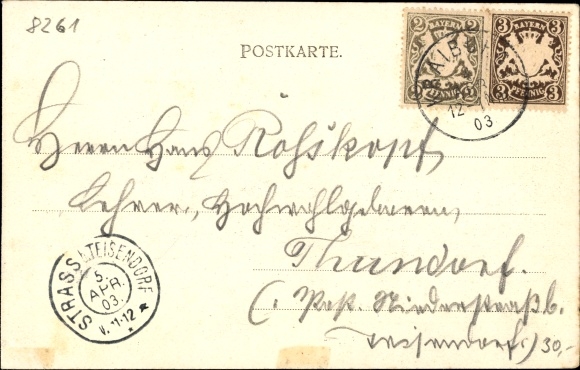 8261
POSTKARTE.
2 BAYERN 2
PFENNIG
3 BAYERN 3
3 PFENNIG 3
KRAIB
12
03
Herrn Hans Roßkopf,
Lehrer, Hochwohlgeboren,
Thundorf.
(Post. Niederstraß b.
Teisendorf.) 30,-
STRASS b.TEISENDORF
5.
APR.
03.
V. 11-12